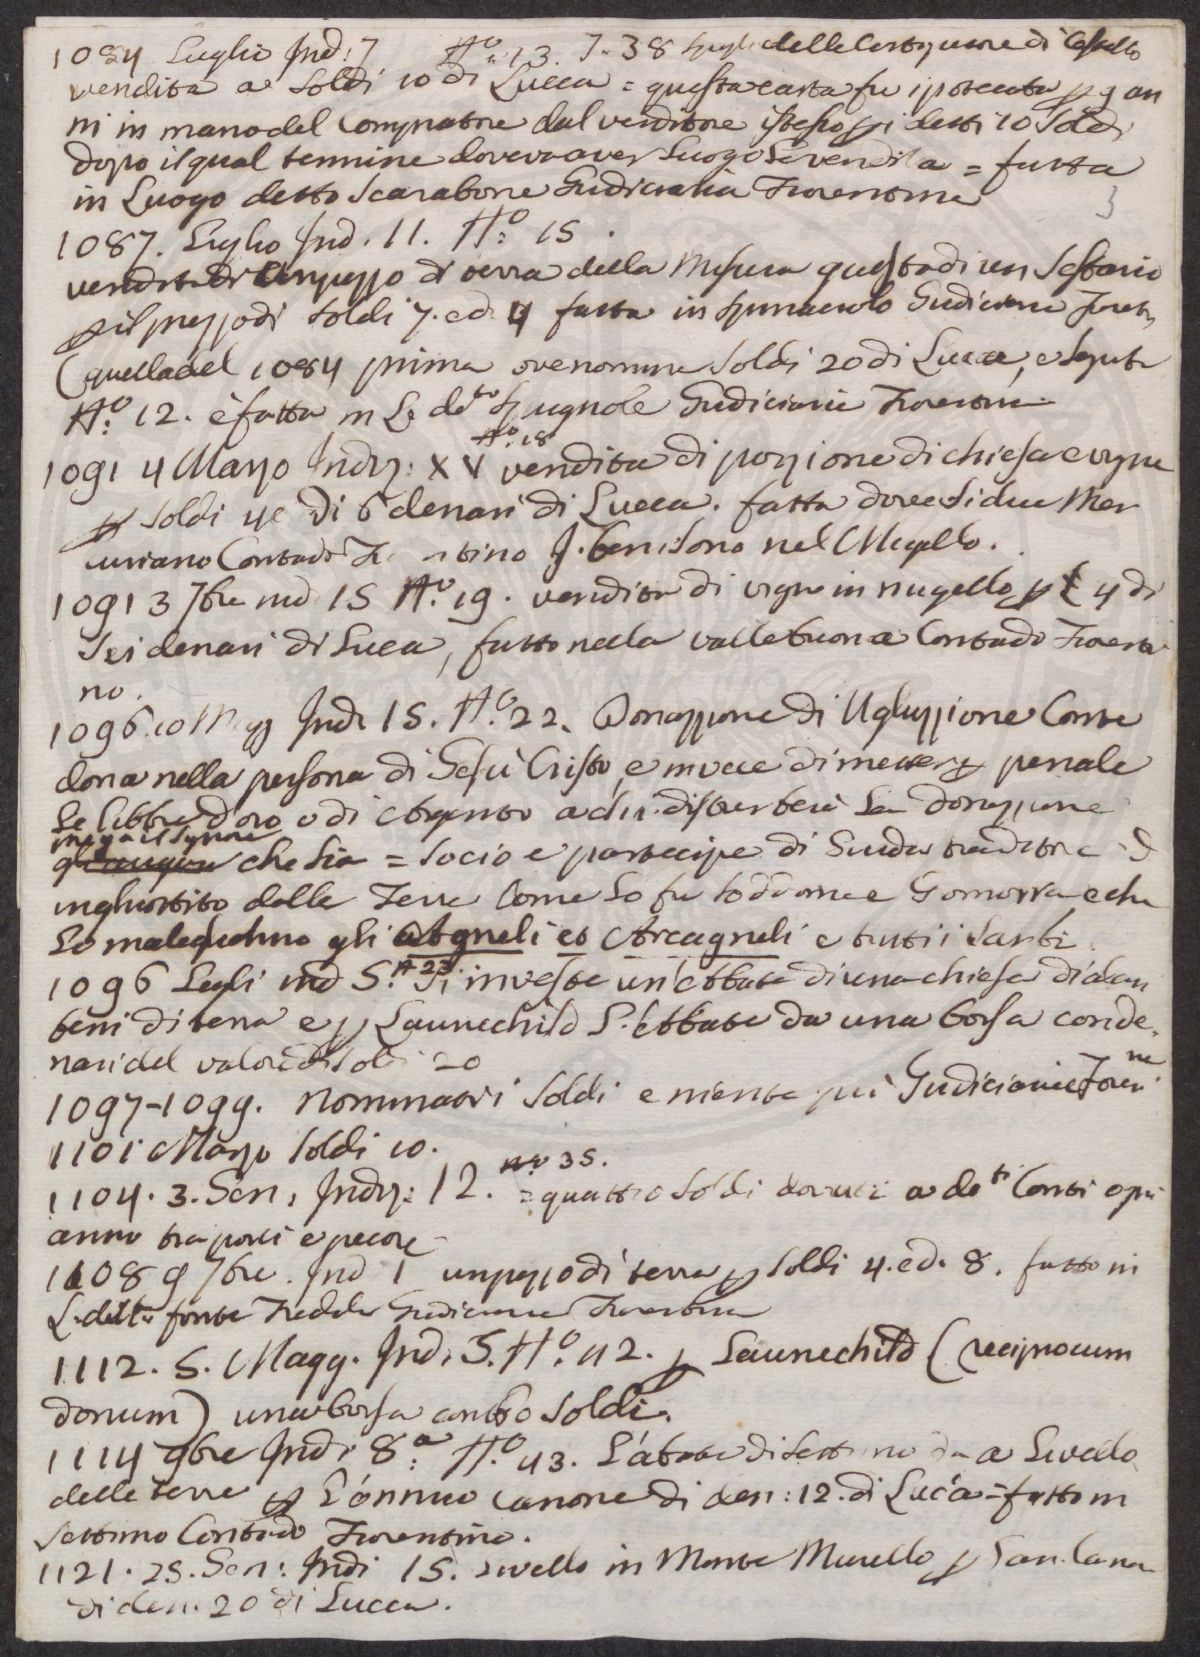 1084 Luglio Ind. 7 N.º 13. 7. 38 delle Cartapecore di Cestello
vendita a Soldi 10 di Lucca = questa carta fu ipotecata p 9 an
ni in mano del Compratore dal venditore istesso p i detti 10 Soldi
dopo il qual termine doveva aver Luogo La vendita = fatta
in Luogo detto Scarabone Giudiciaria Fiorentina
3
1087. Luglio Ind. 11. N.º 15.
vendita di un pezzo di terra della Misura quasta di un Sestario
p il prezzo di Soldi 7. ed 4 fatta in Giudiciaria Fiorent.
(quella del 1084 prima ove nomina Soldi 20 di Lucca, e Segnata
N.º 12. è fatta in L. detto Spugnole Giudiciaria Fiorentina
N.º 18
1091 4 Marzo Indiz: XV vendita di porzione di chiesa e vigne
p Soldi 40 di 6 denari di Lucca. fatta dove si dice Mer
curiano Contado Fiorentino I beni sono nel Mugello.
1091 3 7bre ind 15 N.º 19. vendita di vigne in mugello p £ 4 di
Sei denari di Lucca, fatto nella valle buona Contado Fiorenti
no.
1096. 10 Magg Indi 15. N.º 22. Donazzione di Uguzzione Conte
dona nella persona di Gesù Cristo, e invece di mettere p penale
Le libbre d'oro o di Argento a chi disturberà La donazzione
prega il Signore
che sia = Socio e partecipe di Giuda traditore
inghiottito dalla Terra Come Lo fu Soddoma e Gomorra e che
Lo maledichino gli Agneli et Arcagneli e tutti i Santi.
1096 Lugli ind 5. N 23 Si investe un'Abbate di una chiesa di alcuni
beni di terra e p Launechild L'Abbate da una borsa con de,
nari del valore di Soldi 20
1097-1099. Nominativi Soldi e niente più Giudiciarie Fioren.ne
1101 Marzo Soldi 10.
N.º 35.
1104. 3. Gen, Indiz: 12. = quattro Soldi dovuti a do.ti Conti ogni
anno tra porci e pecore
1108 9 7bre. Ind 1 un pezzo di terra p Soldi 4. e d. 8. fatto in
L. detto fonte Fredda Giudiciaria Fiorentina
1112. 5. Magg. Ind, 5. N.º 42. p Launechild (reciprocum
donum) una borsa con Soldi.
1114 9bre Indi 8.ª N.º 43. L'abate di Settimo da a Livello
delle terre p L'annuo canone di den: 12. di Lucca = fatto in
Settimo Contado Fiorentino.
1121. 25. Gen: Indi 15. Livello in Monte Murello p
di den. 20 di Lucca.